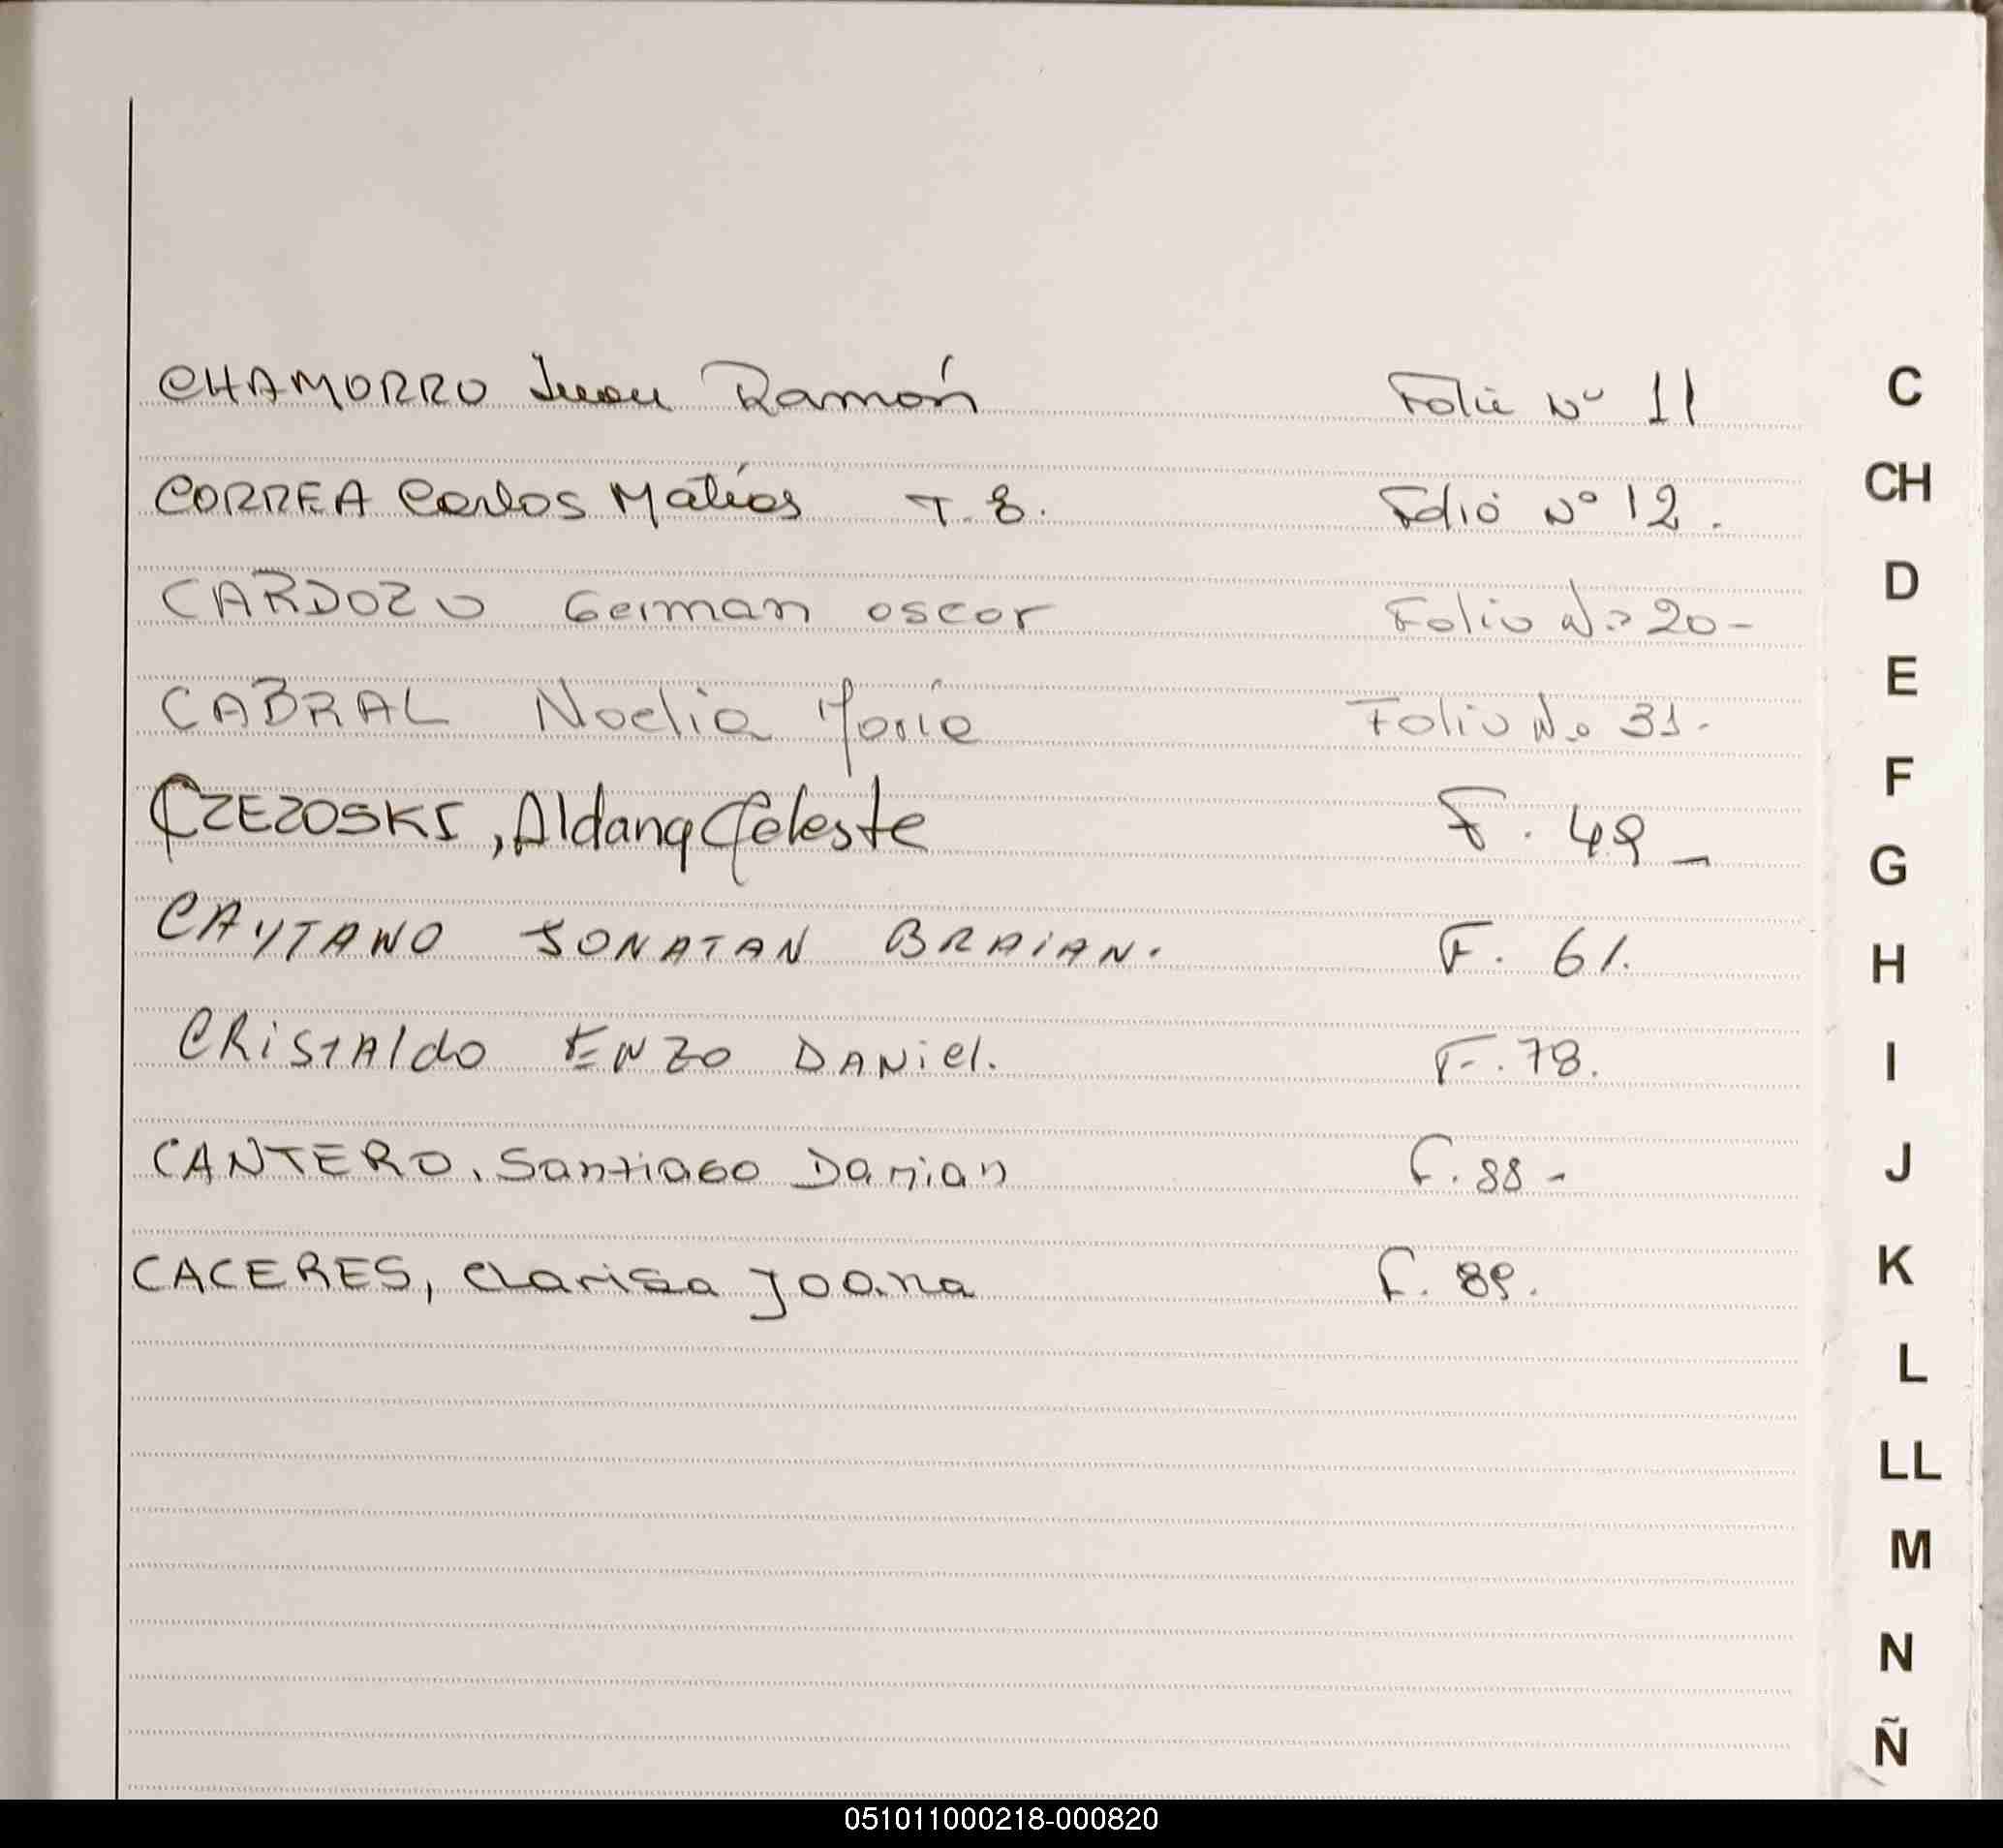 CHAMORRO Juan Ramón Folio Nº 11 C
CORREA Carlos Matías T.E. Folio Nº 12. CH
CARDOZO German oscar Folio Nº 20- D
CABRAL Noelia María Folio Nº 31- E
CZEZOSKI, Aldana Celeste F. 49- F
G
CAYTANO JONATAN BRAIAN. F. 61. H
CRISTAldo ENZO DANiel. F. 78. I
CANTERO, Santiago Damian F. 88- J
CACERES, Clarisa Joana F. 89. K
L
LL
M
N
Ñ
051011000218-000820